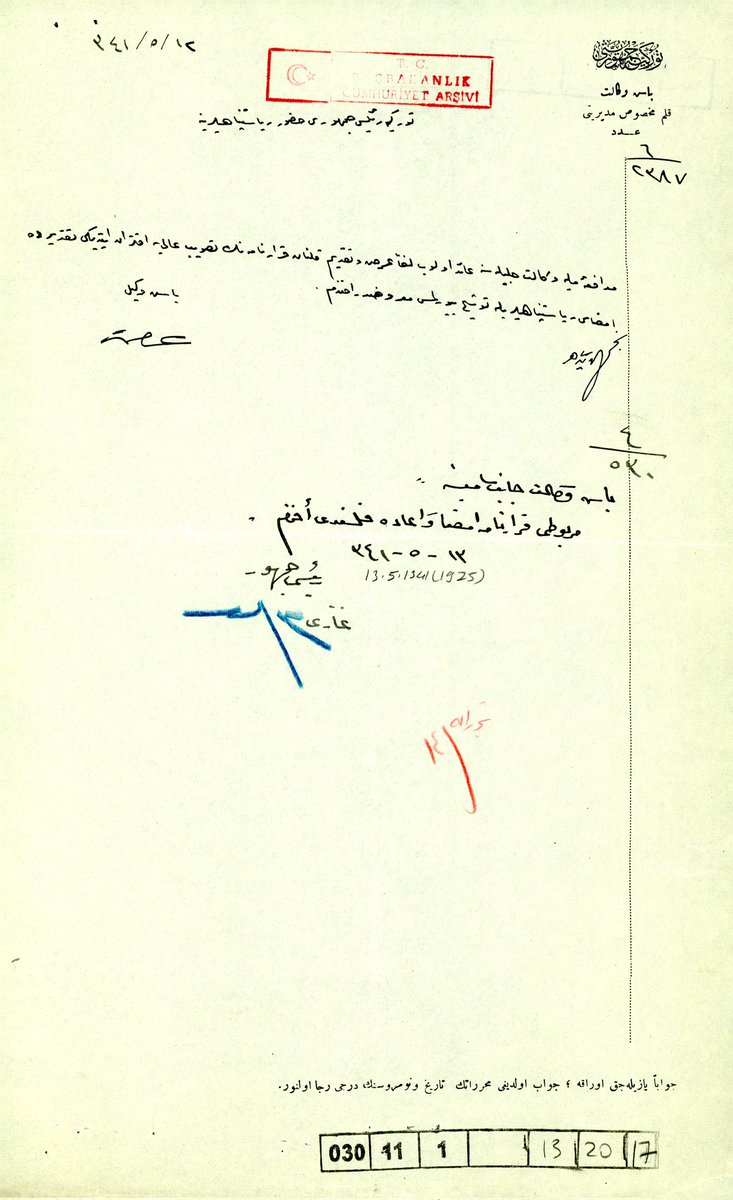 ١٢/٥/٣٤١
توركيه جمهوريتى
T. C.
BAŞBAKANLIK
CUMHURİYET ARŞİVİ
باش وكالت
قلم مخصوص مديريتى
عــدد
٦
٢٣٨٧
توركيه رئيس جمهورى حضور رياستپناهيلرينه
مدافعۀ مليه وكالت جليله سنه عائد اولوب لفاً عرض وتقديم قلنان قرارنامه نك تصويب عاليه اقتران ايتديكى تقديرده
امضاى رياستپناهيلريله توشيح بيورلمسى معروضدر افندم .
باش وكيل
عصمت
٤
٥٣٠
باش وكالت جانب ساميسنه
مربوطى قرارنامه امضا و اعاده قلندى افندم .
١٣-٥-٣٤١
13.5.1341 (1925)
رئيس جمهور
غازى م
جواباً يازيله‌جق اوراقه ؛ جواب اولديغى محرراتك تاريخ ونومروسنك درجى رجا اولنور.
030 11 1 13 20 17